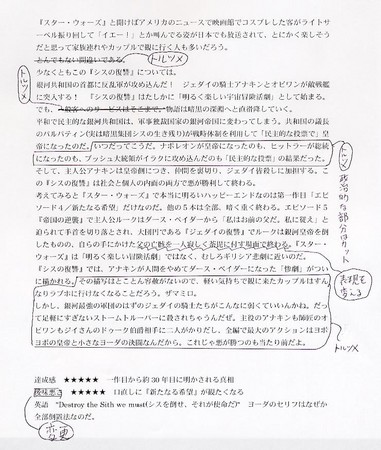 『スター・ウォーズ』と聞けばアメリカのニュースで映画館でコスプレした客がライトサ
ーベル振り回して「イエー！」とか叫んでる姿が日本でも放送されて、とにかく楽しそう
だと思って家族連れやカップルで観に行く人も多いだろう。
とんでもない間違いである。
トルツメ
トルツメ
少なくともこの『シスの復讐』については。
銀河共和国の首都に反乱軍が攻め込んだ！　ジェダイの騎士アナキンとオビワンが敵戦艦
に突入する！　『シスの復讐』はたしかに「明るく楽しい宇宙冒険活劇」として始まる。
でも、一般客へのサービスはそこまで。物語は暗黒の深淵へと直滑降していく。
平和で民主的な銀河共和国は、軍事独裁国家の銀河帝国に変わってしまう。共和国の議長
のパルパティン(実は暗黒集団シスの生き残り)が戦時体制を利用して「民主的な投票で」皇
帝になったのだ。いつだってこうだ。ナポレオンが皇帝になったのも、ヒットラーが総統
になったのも、ブッシュ大統領がイラクに攻め込んだのも「民主的な投票」の結果だった。
トルツメ
政治的な部分はカット
そして、主人公アナキンは皇帝側につき、仲間を裏切り、ジェダイ皆殺しに加担する。こ
の『シスの復讐』は社会と個人の内面の両方で悪が勝利して終わる。
考えてみると『スター・ウォーズ』で本当に明るいハッピーエンドなのは第一作目「エピ
ソード4／新たなる希望」だけなのだ。他の５本は全部、暗く重く終わる。エピソード５
『帝国の逆襲』で主人公ルークはダース・ベイダーから「私はお前の父だ。私に従え」と
迫られて手首を切り落とされ、大団円である『ジェダイの復讐』でルークは銀河皇帝を倒
したものの、自らの手にかけた父の亡骸を一人寂しく荼毘に付す場面で終わる。『スター・
ウォーズ』は「明るく楽しい冒険活劇」ではなく、むしろギリシア悲劇に近いのだ。
『シスの復讐』では、アナキンが人間をやめてダース・ベイダーになった「惨劇」がつい
に描かれる。その描写はとことん容赦がないので、軽い気持ちで観に来たカップルはすん
なりラブホに行けなくなることだろう。ザマミロ。
表現を
考える
しかし、銀河最強の軍団のはずのジェダイの騎士たちがこんなに弱くていいんかね。だっ
て足軽にすぎないストームトルーパーに殺されちゃうんだぜ。主役のアナキンも師匠のオ
ビワンもジイさんのドゥークー伯爵相手に二人がかりだし、全編で最大のアクションはヨボ
ヨボの皇帝と小さなヨーダの決闘なんだから。これじゃ悪が勝つのも当たり前だよ。
トルツメ
達成感　★★★★★　一作目から約30年目に明かされる真相
後味悪さ　★★★★★　口直しに『新たなる希望』が観たくなる
英語　"Destroy the Sith we must(シスを倒せ、それが使命だ)"　ヨーダのセリフはなぜか
全部倒置法なのだ。
変更